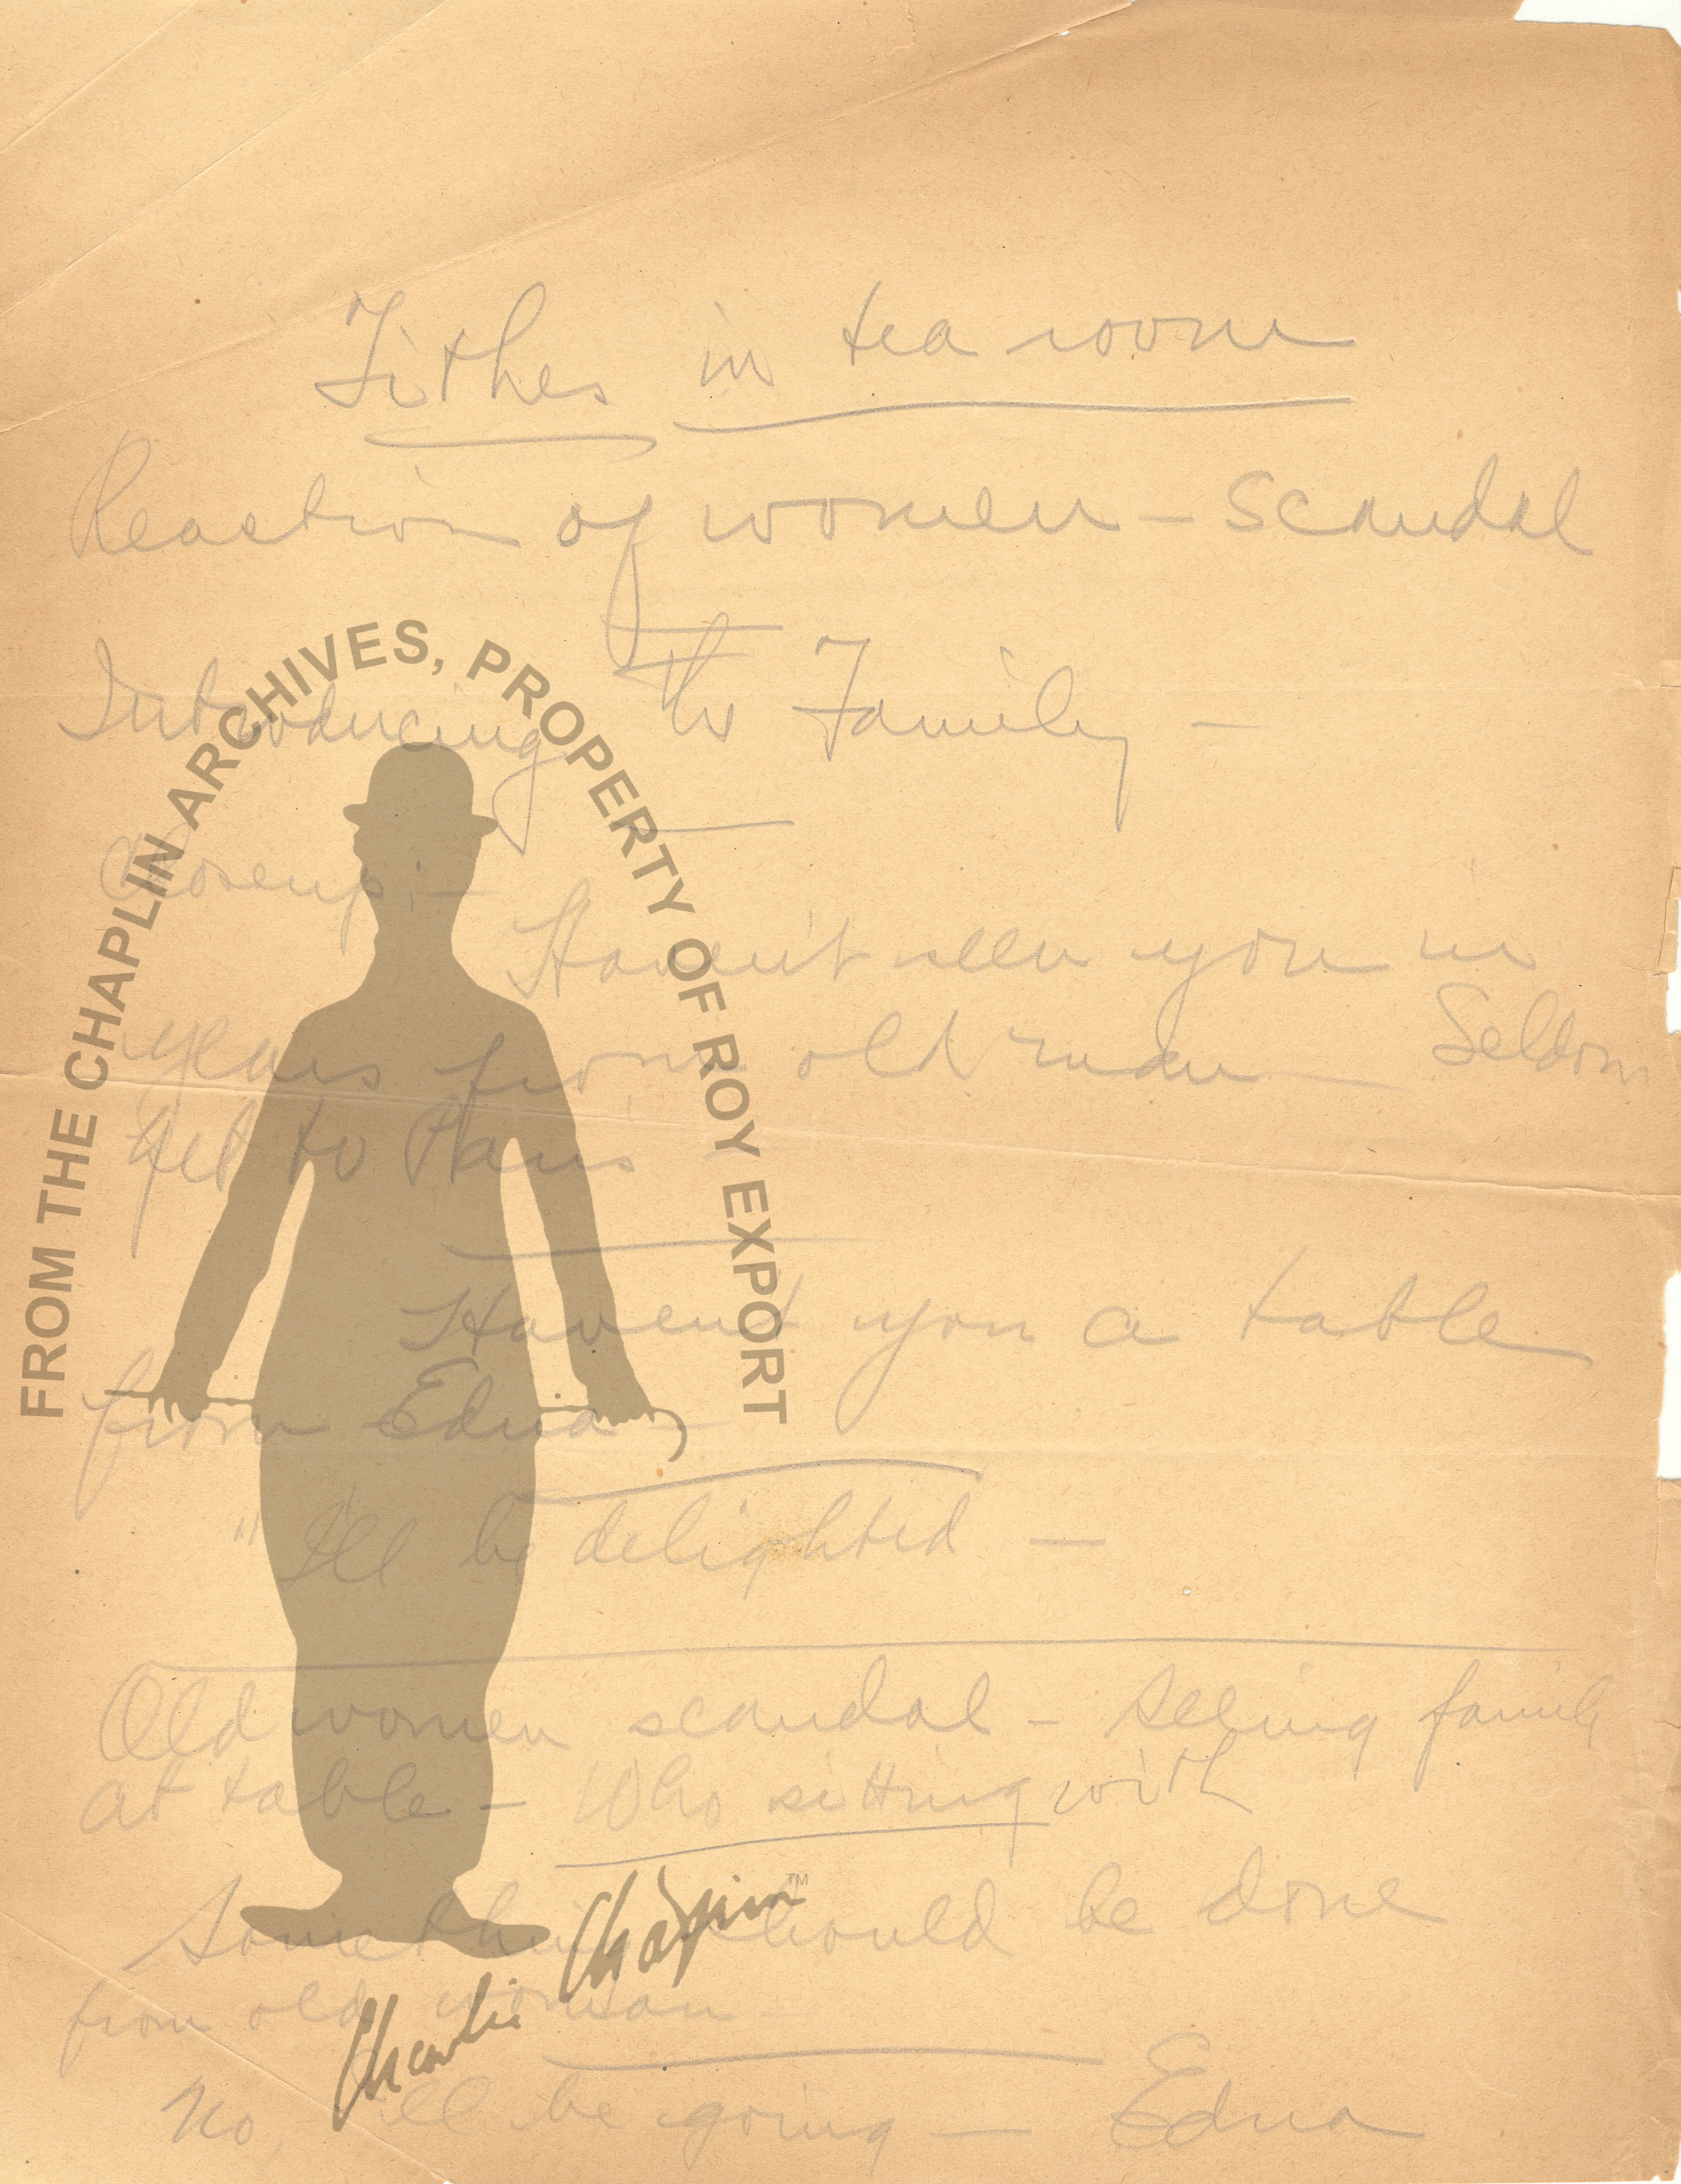 Tithes in tea room
Reaction of women – Scandal
Introducing the Family –
Closeup: –
Haven't seen you in
years from old man – Seldom
get to Paris
Havent you a table
from Edna –
"I'll be delighted –
Old women scandal – seeing family
at table – Who sitting with
Something should be done
from old woman
No, I'll be going – Edna
FROM THE CHAPLIN ARCHIVES, PROPERTY OF ROY EXPORT
Charlie Chaplin™